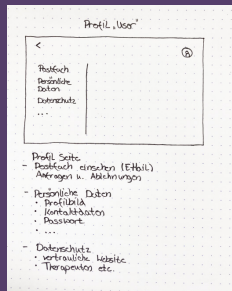 Profil „User"
<
A
Postfach
Persönliche
Daten
Datenschutz
...
Profil Seite
- Postfach einsehen (E-Mail)
Anfragen u. Ablehnungen
- Persönliche Daten
· Profilbild
· Kontaktdaten
· Passwort
· ...
- Datenschutz
· vertrauliche Website
· Therapeuten etc.